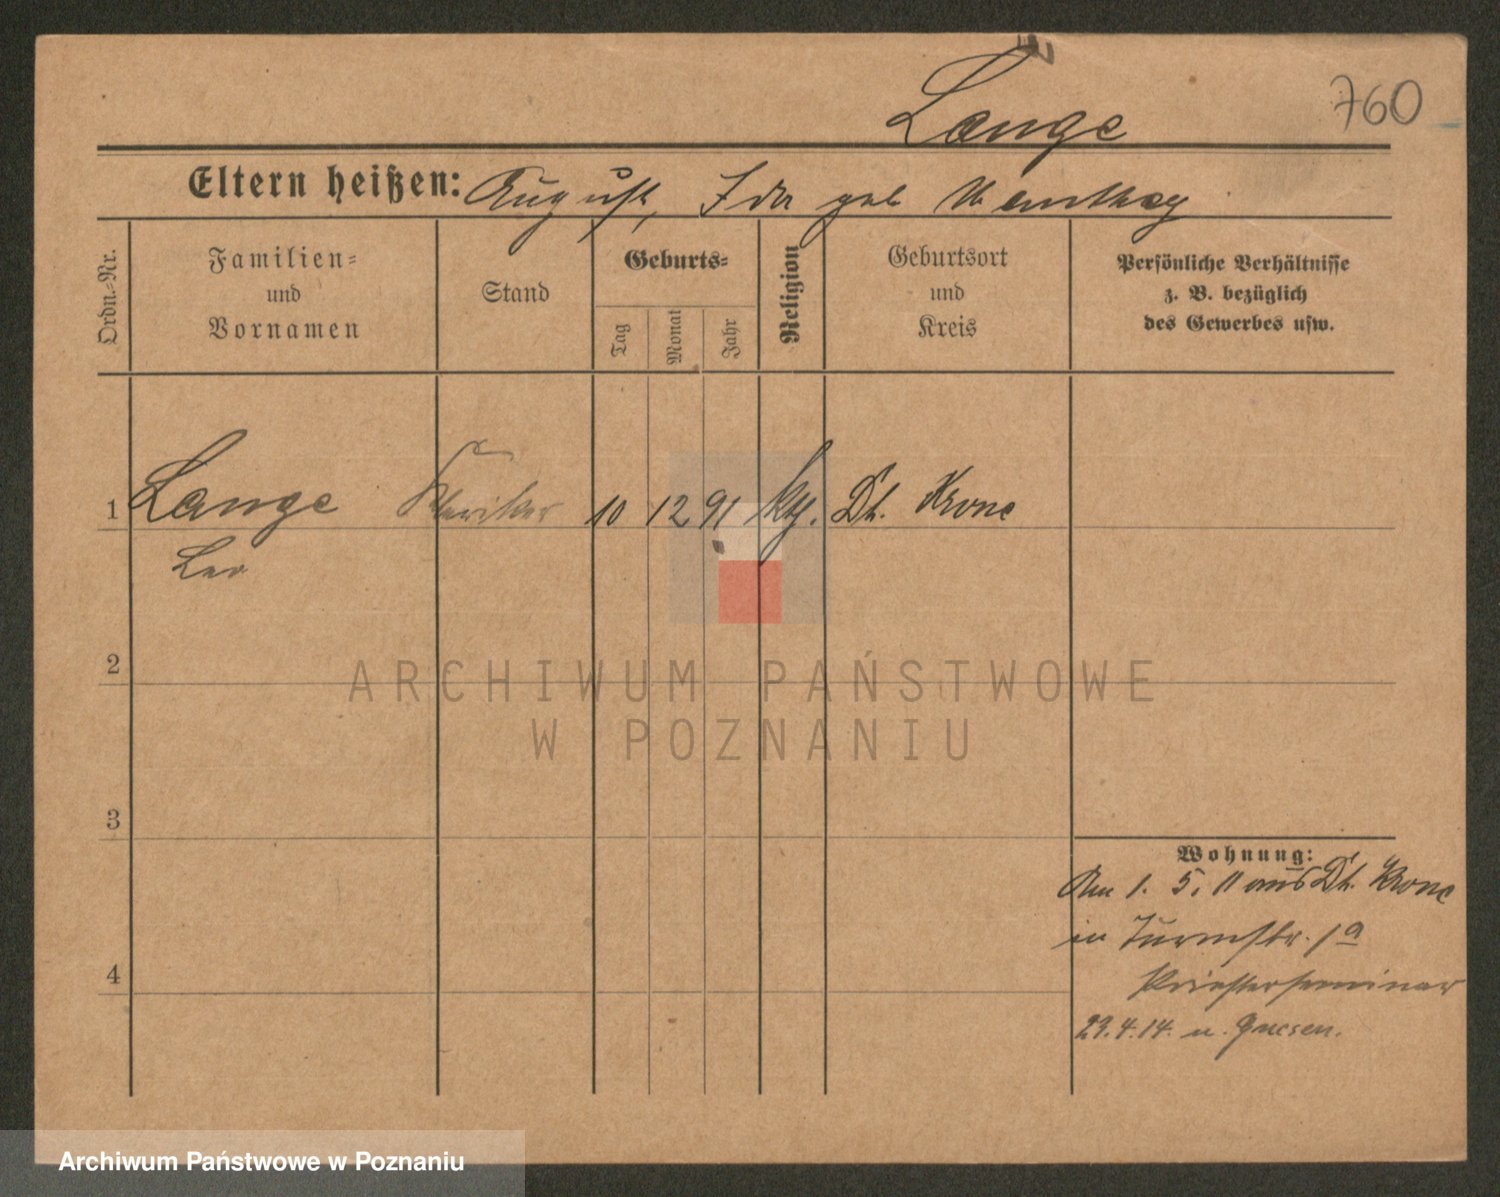 Lange
760
Eltern heißen: August, Ida geb
Ordn.-Nr.
Familien-
und
Vornamen
Stand
Geburts-
Tag
Monat
Jahr
Religion
Geburtsort
und
Kreis
Persönliche Verhältnisse
z. B. bezüglich
des Gewerbes usw.
1 Lange Kleriker 10 12 91 kth. Dt. Krone
Leo
2
3
4
Wohnung:
Am 1. 5. 11 aus Dt. Krone
in Turmstr. 1a
Priesterseminar
29.4.14. n. Gnesen.
ARCHIWUM PAŃSTWOWE
W POZNANIU
Archiwum Państwowe w Poznaniu